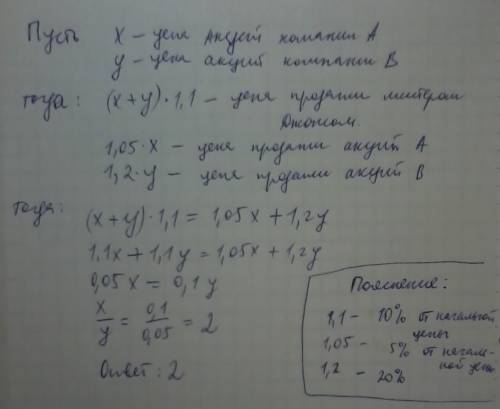 Пусть x – цена акций компании А
y – цена акций компании В
тогда: (x+y)·1,1 – цена продажи мистером
Джонсом.
1,05·x – цена продажи акций А
1,2·y – цена продажи акций В
тогда:
(x+y)·1,1 = 1,05x + 1,2y
1,1x + 1,1y = 1,05x + 1,2y
0,05x = 0,1y
x/y = 0,1/0,05 = 2
Ответ: 2
Пояснение:
1,1 – 10% от начальной
цены
1,05 – 5% от началь-
ной цены
1,2 – 20%